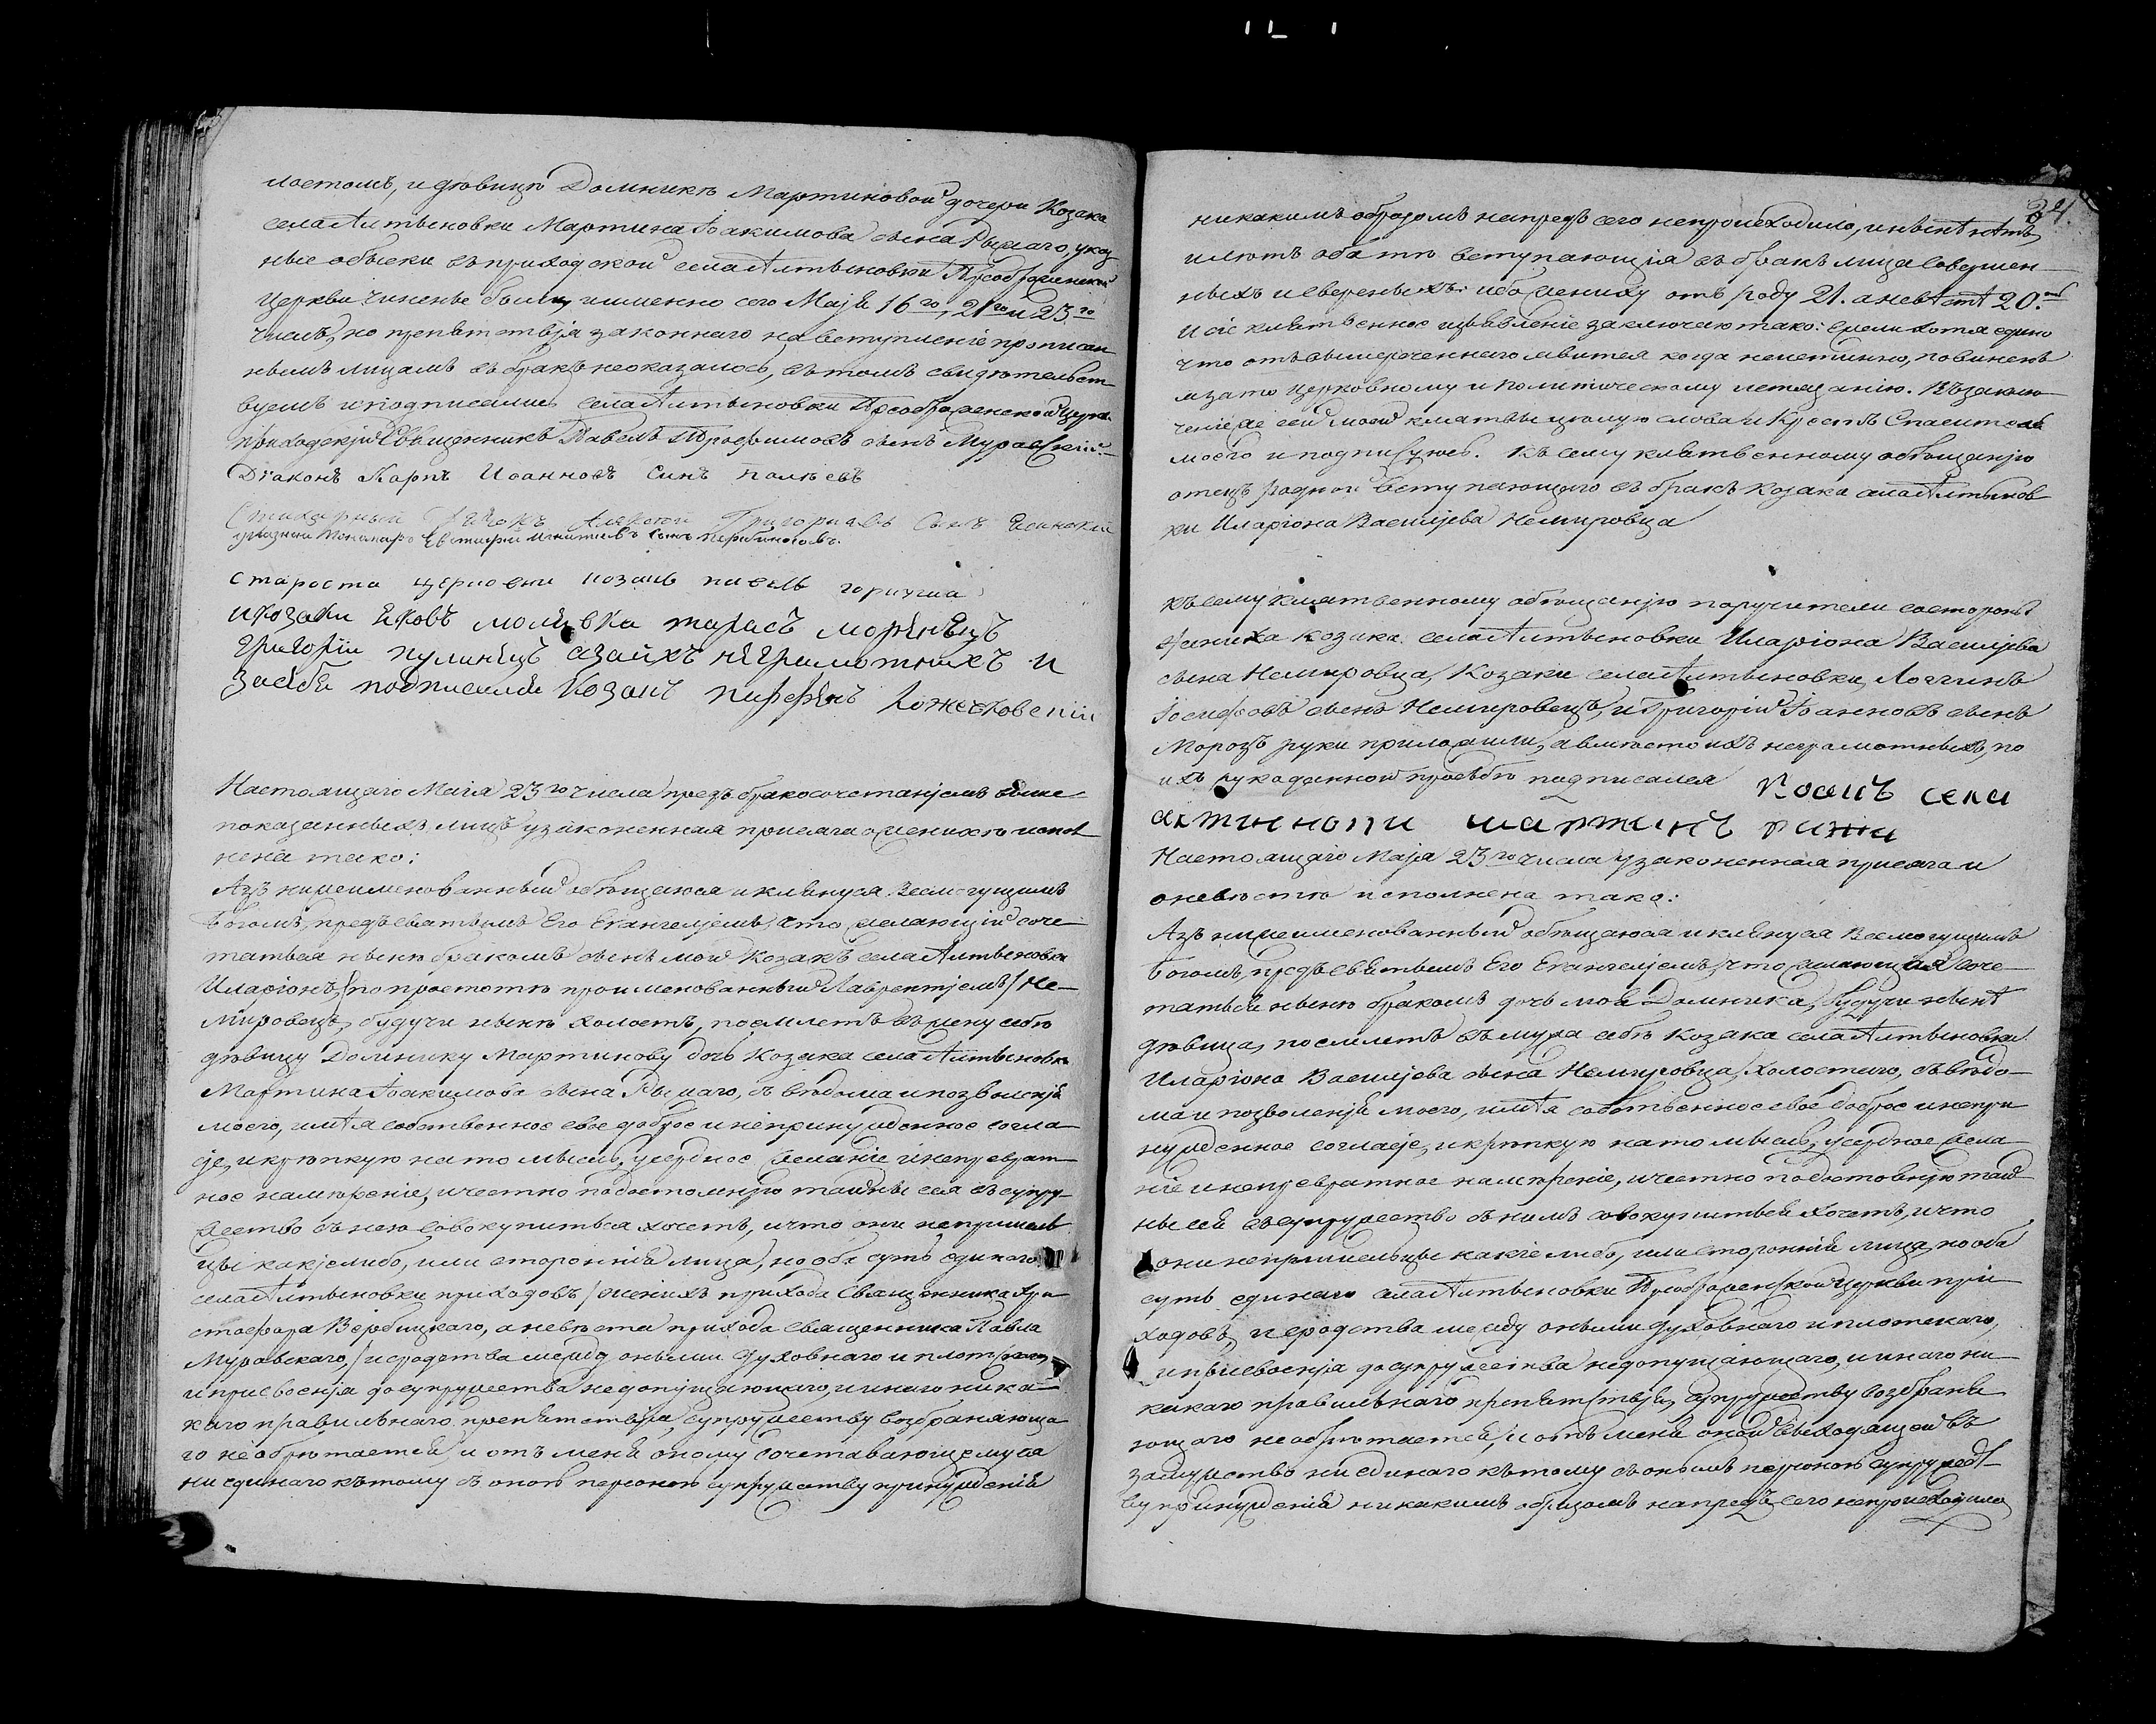 лостомъ, и дѣвицѣ Домникѣ Мартиновой дочери Козака
села Алтыновки Мартина Іоакимова сына Рыжаго, указ
ные обыски въ приходской села Алтыновки Преображенской
церкви чинены были, именно сего Маія 16го, 21го и 23го
числъ, но препятствія законнаго на вступленіе прописан
нымъ лицамъ въ бракъ неоказалось, въ томъ свидѣтельст
вуемъ и подписались села Алтыновки Преображенской Церкви
приходскій Священникъ Павелъ Трофимовъ сынъ Муравскій
Діаконъ Карпъ Иоанновъ Синъ
Стихарный Алексей Григориевъ Сынъ
указный Пономарь Евстафий
староста церковни козакъ
и козаки Яковъ тарасъ
григорій а заихъ неграмотнихъ и
засебе подписался Козакъ
Настоящаго Маія 23го числа предъ бракосочетаніемъ више
показанныхъ лицъ узаконенная присяга о женихѣ испол
нена тако:
Азъ нижеименованный обѣщаюся и клянуся Всемогущимъ
Богомъ, предъ святымъ Его Евангеліемъ, что желающій соче
таться нынѣ бракомъ сынъ мой Козакъ села Алтыновки
Иларіонъ /по простотѣ проименованный Лаврентіемъ/ Не
мировецъ, будучи нынѣ холостъ, поемлетъ въ жену себѣ
дѣвицу Домнику Мартинову дочь Козака села Алтыновки
Мартина Іоакимова сына Рыжаго, съ вѣдома и позволенія
моего, имѣя собственное свое доброе и непринужденное согла
сіе, и крѣпкую на то мысль, усердное желаніе и непреврат
ное намѣреніе, и честно по достоянію тайны сея въ супру
жество съ нею совокупиться хочетъ, и что они непришель
цы какіе либо, или сторонніе лица, но оба суть единаго
села Алтыновки приходовъ /женихъ прихода Священника Хри
стофора Вербицкаго, а невѣста прихода священника Павла
Муравскаго,/ и сродства между оными духовнаго и плотскаго,
и присвоенія до супружества недопущающаго, и инаго ника
каго правильнаго препятствія, супружеству возбраняюща
го не обрѣтается, и отъ меня оному сочетавающемуся
ни единаго къ тому съ оною персоною супружеству принужденія
34.
никакимъ образомъ напредъ сего непроисходило, и нынѣ нѣтъ,
и лѣтъ оба тѣ вступающія въ бракъ лица совершен
ныхъ и сверсныхъ: ибо жениху отъ роду 21. а невѣстѣ 20.
И сіе клятвенное изъявленіе заключаю тако: ежели хотя едино
что отъ вышереченнаго явится когда неистинно, повиненъ
я за то Церковному и политическому истязанію. Въ заклю
ченіе же сей моей клятвы цѣлую слова и Крестъ Спасителя
моего и подписуюсь. Къ сему клятвенному обѣщанію
отецъ родной вступающаго въ бракъ козака села Алтынов
ки Иларіона Василіева Немировца
Къ сему клятвенному обѣщанію поручители со стороны
жениха козака села Алтыновки Иларіона Василіева
сына Немировца, Козаки села Алтыновки, Логгинъ
Іосифовъ сынъ Немировецъ, и Григорій Іоанновъ сынъ
Морозъ руки приложили, а вмѣсто ихъ неграмотныхъ, по
ихъ рукоданной прозбѣ подписался Козакъ села
мартинъ
Настоящаго Маія 23го числа узаконенная присяга и
о невѣстѣ исполнена тако:
Азъ нижеименованный обѣщаюся и клянуся Всемогущимъ
Богомъ, предъ святымъ Его Евангеліемъ, что желающая соче
таться нынѣ бракомъ дочь моя Домника, будучи нынѣ
дѣвица, поемлетъ въ мужа себѣ козака села Алтыновки
Иларіона Василіева сына Немировца, Холостаго, съ вѣдо
ма и позволенія моего, имѣя собственное свое доброе и непри
нужденное согласіе, и крѣпкую на то мысль, усердное жела
ніе и непревратное намѣреніе, и честно по достоянію тай
ны сея въ супружество съ нимъ совокупиться хочетъ, и что
они непришельцы какіе либо, или сторонніе лица, но оба
суть единаго села Алтыновки Преображенской церкви при
ходовъ, и сродства между оными духовнаго и плотскаго,
и присвоенія до супружества недопущающаго, и инаго ни
какаго правильнаго препятствія, супружеству возбраня
ющаго не обрѣтается, и отъ меня оной выходящей въ
замужество ни единаго къ тому съ оною персоною супружест
ву принужденія никакимъ образомъ напредъ сего непроисходило